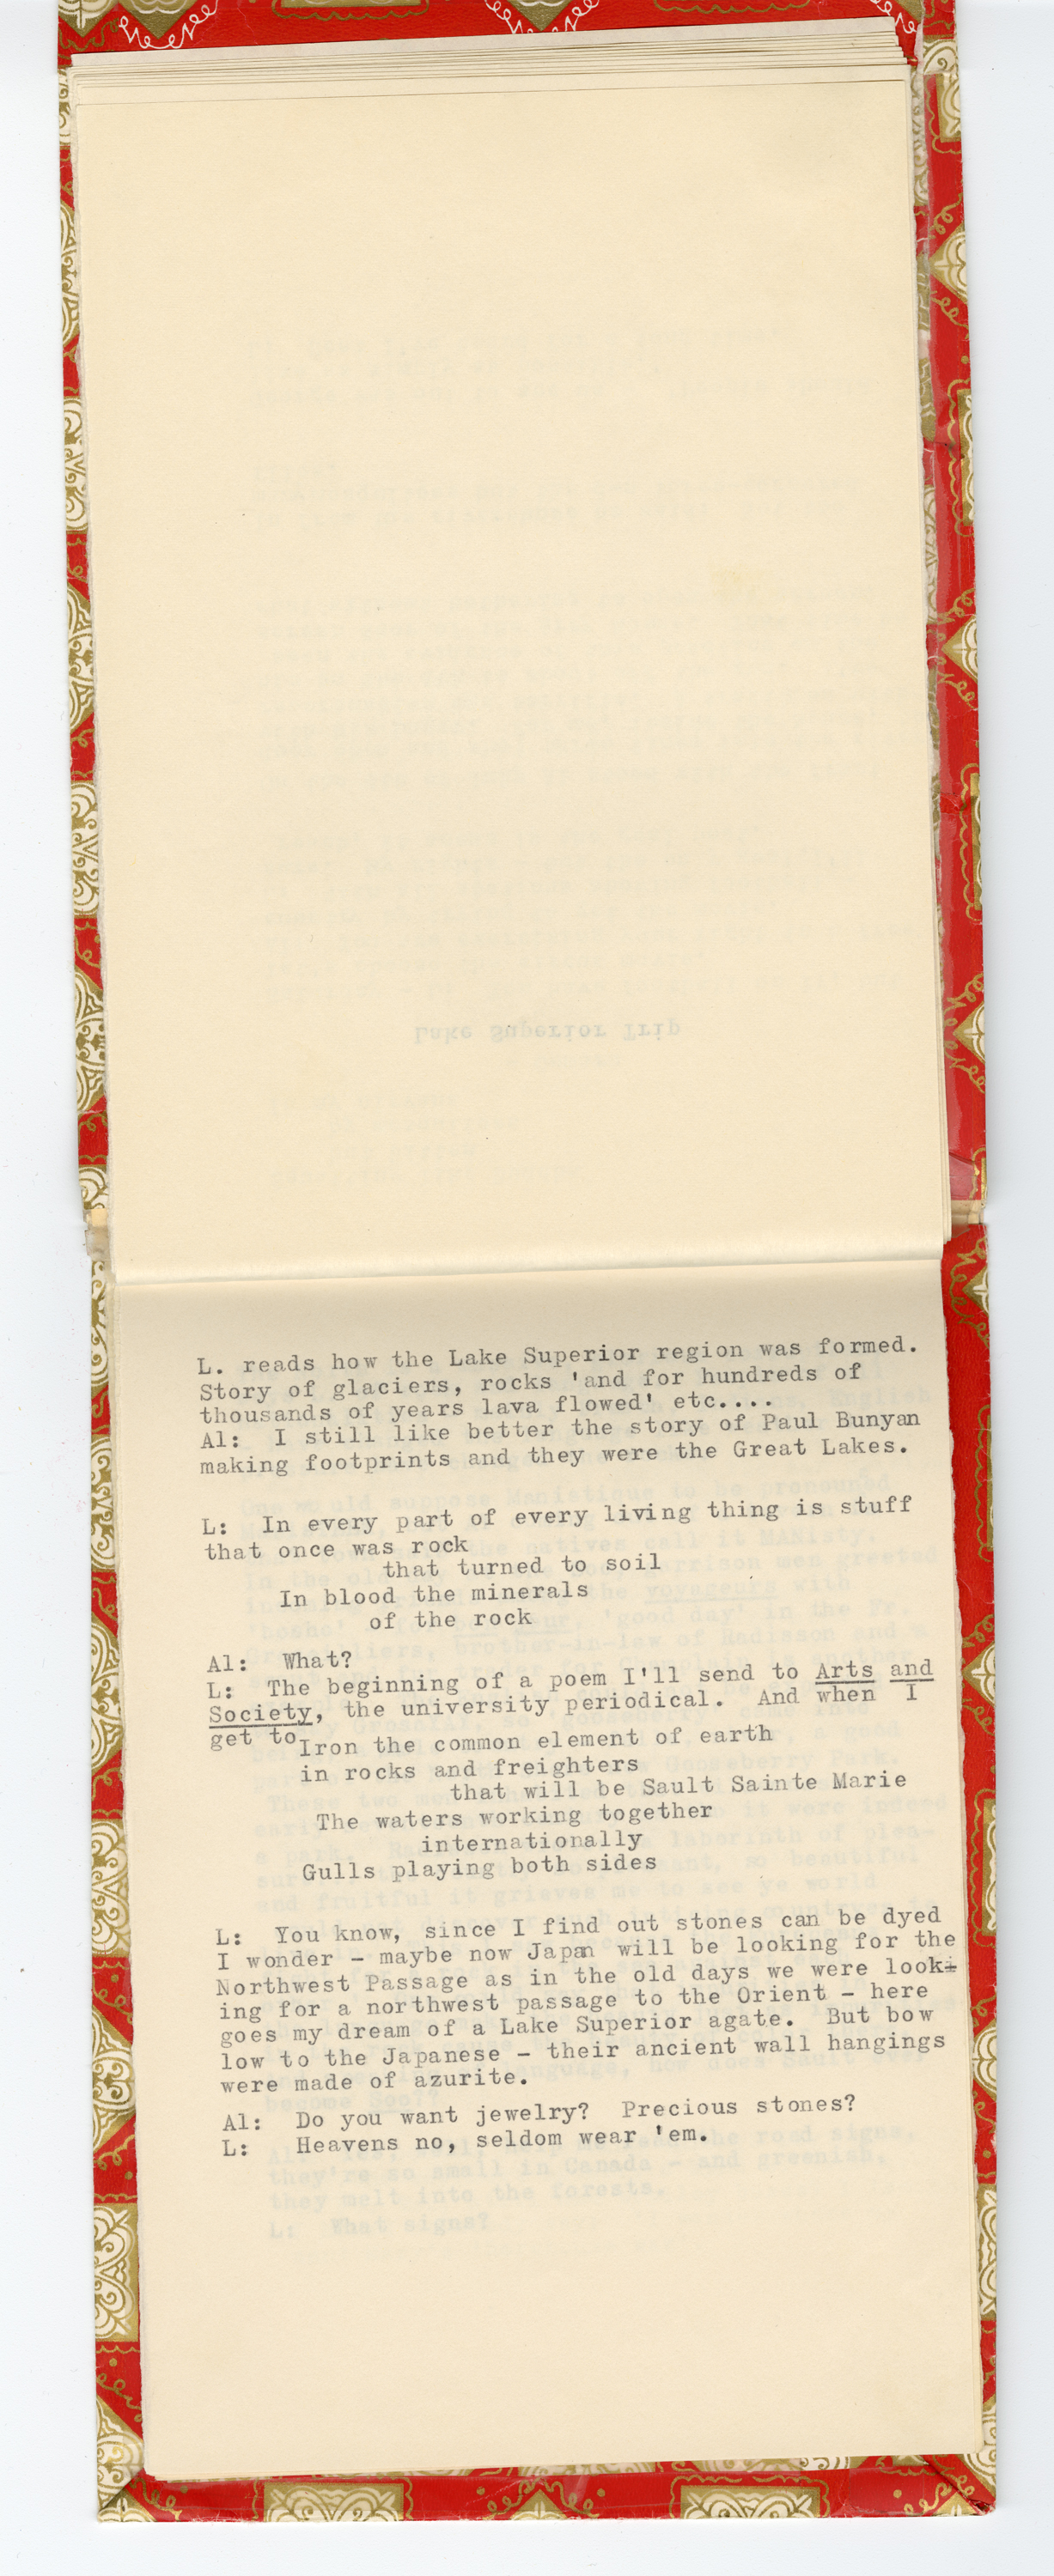 Lake Superior Trip
L. reads how the Lake Superior region was formed.
Story of glaciers, rocks 'and for hundreds of
thousands of years lava flowed' etc....
Al:  I still like better the story of Paul Bunyan
making footprints and they were the Great Lakes.
L:  In every part of every living thing is stuff
that once was rock
that turned to soil
In blood the minerals
of the rock
Al:  What?
L:  The beginning of a poem I'll send to Arts and
Society, the university periodical.  And when I
get to
Iron the common element of earth
in rocks and freighters
that will be Sault Sainte Marie
The waters working together
internationally
Gulls playing both sides
L:  You know, since I find out stones can be dyed
I wonder - maybe now Japan will be looking for the
Northwest Passage as in the old days we were look-
ing for a northwest passage to the Orient - here
goes my dream of a Lake Superior agate.  But bow
low to the Japanese - their ancient wall hangings
were made of azurite.
Al:  Do you want jewelry?  Precious stones?
L:  Heavens no, seldom wear 'em.